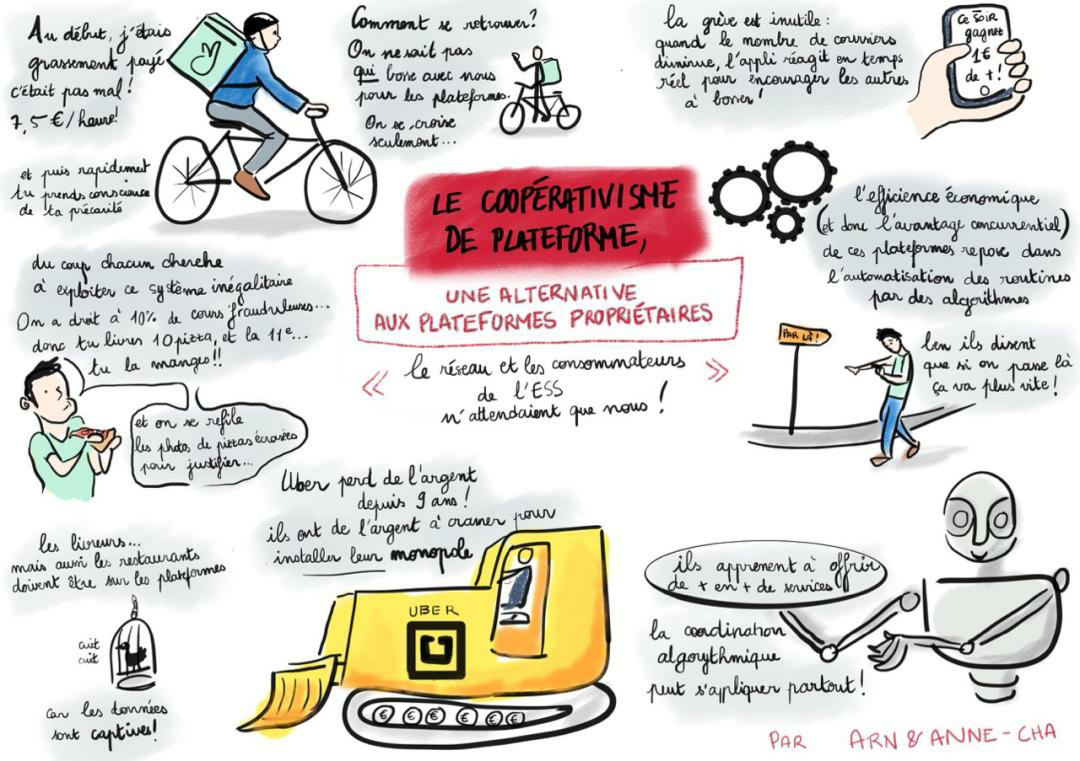 Au début, j'étais
grassement payé
c'était pas mal !
7,5 €/heure!
et puis rapidement
tu prends conscience
de ta précarité
Comment se retrouver?
On ne sait pas
qui bosse avec nous
pour les plateformes.
On se croise
seulement...
la grève est inutile :
quand le nombre de coursiers
diminue, l'appli réagit en temps
réel pour encourager les autres
à bosser!
Ce soir
gagnez
1€
de + !
LE COOPÉRATIVISME
DE PLATEFORME,
UNE ALTERNATIVE
AUX PLATEFORMES PROPRIÉTAIRES
« le réseau et les consommateurs
de l'ESS
n'attendaient que nous ! »
l'efficience économique
(et donc l'avantage concurrentiel)
de ces plateformes repose dans
l'automatisation des routines
par des algorithmes
du coup chacun cherche
à exploiter ce système inégalitaire
On a droit à 10% de cours frauduleuses...
donc tu livres 10 pizza, et la 11e...
tu la manges !!
et on se refile
les photos de pizzas écrasées
pour justifier...
PAR LÀ !
ben ils disent
que si on passe là
ça va plus vite !
Uber perd de l'argent
depuis 9 ans !
ils ont de l'argent à cramer pour
installer leur monopole
UBER
€ € € € € €
les livreurs...
mais aussi les restaurants
doivent être sur les plateformes
cuit
cuit
car les données
sont captives!
ils apprennent à offrir
de + en + de services
la coordination
algorythmique
peut s'appliquer partout !
PAR ARN & ANNE-CHA